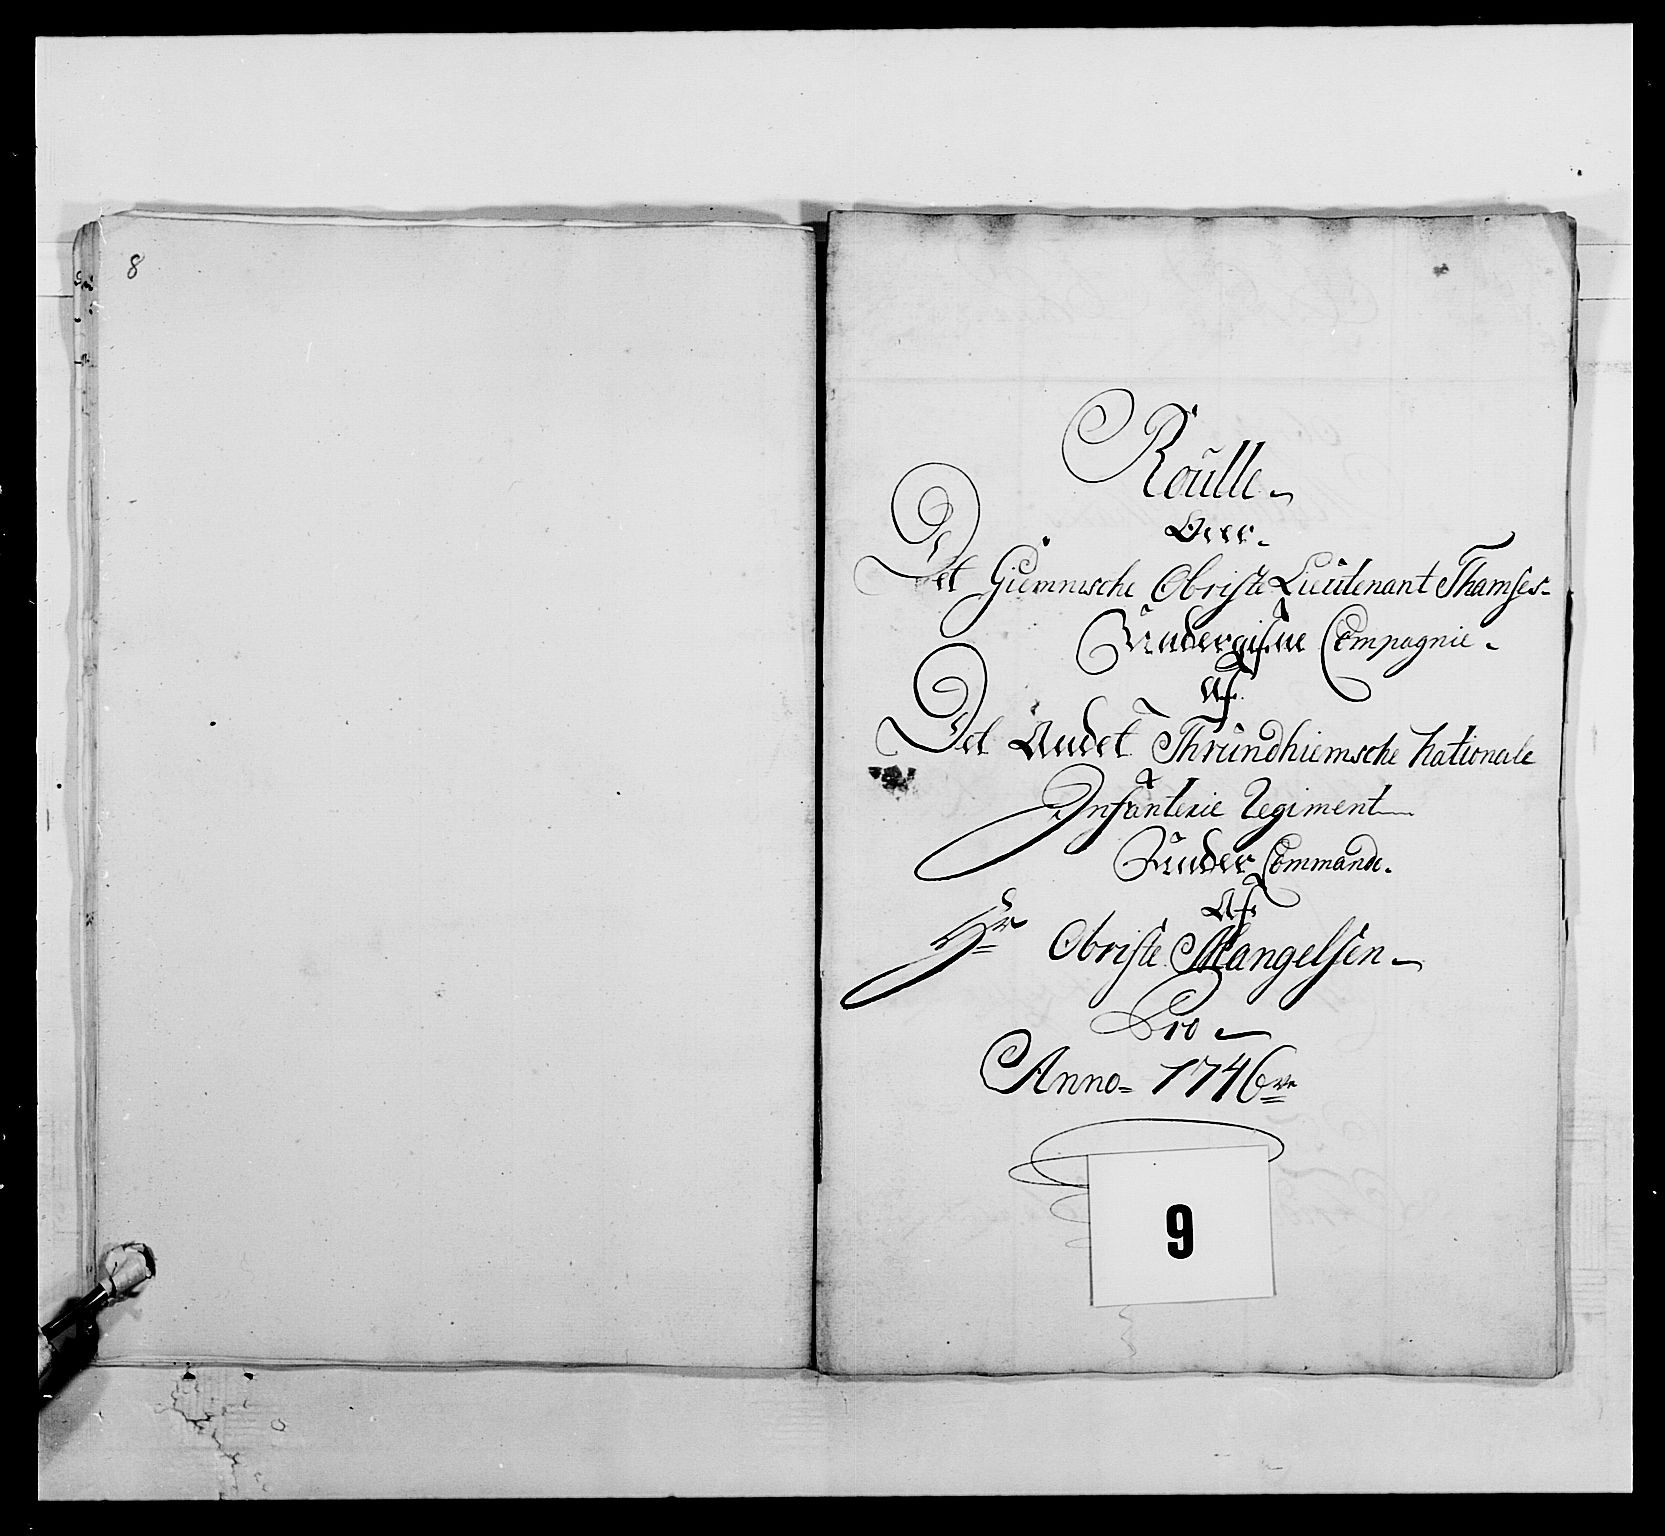 8
Roulle
Over
Det Giemnische Obriste Lieutenant Thamses
Undergifne Compagnie
Af
Det Andet Thrundhiemsche Nationale
Infanterie Regiment
Under Commando
Af
Hr Obriste Mangelsen
Pro
Anno 1746
9